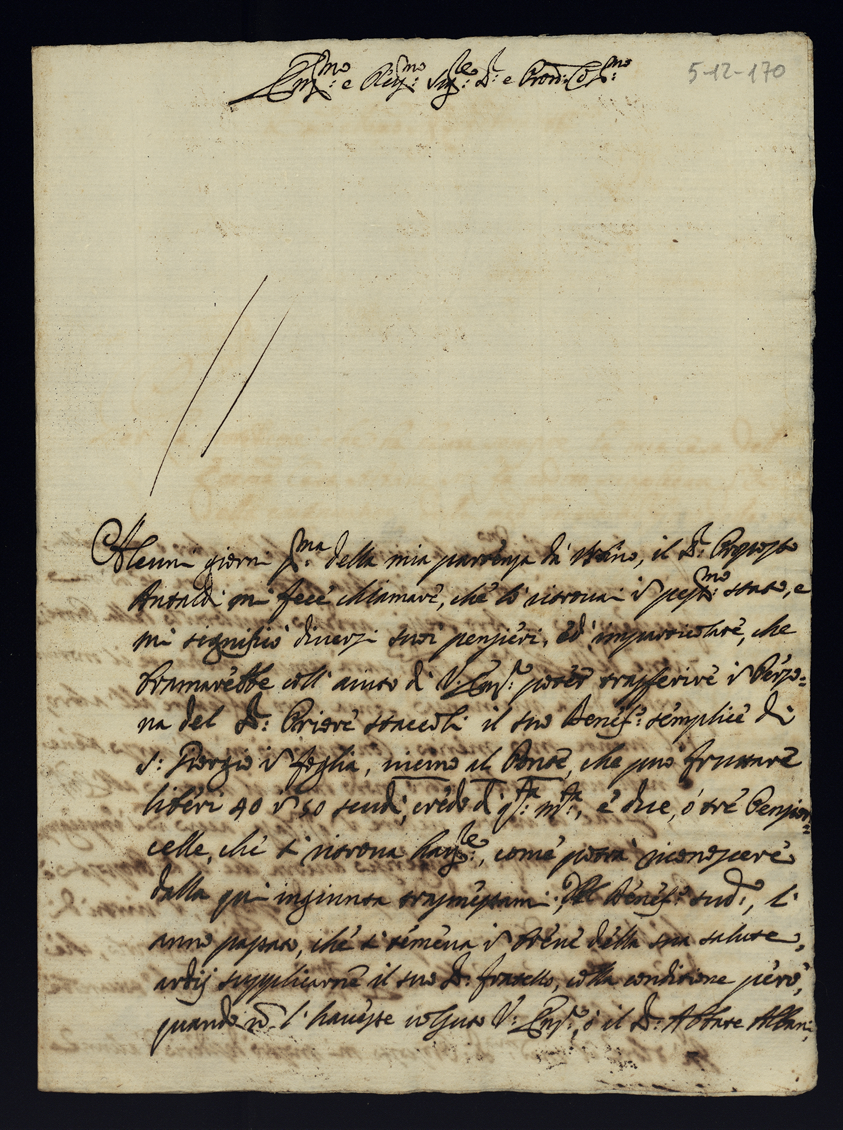 Em.mo e Rev.mo Sig.re S.r e Pron: Co.mo
5-12-170
Alcuni giorni p.ma della mia partenza da Urbino, il S.r Proposto
Antaldi mi fece chiamare, che lo ritrovai i pess.mo stato, e
mi significò diversi suoi pensieri, ed' imparticolare, che
bramarebbe coll' aiuto di V: Em.a poter trasferire i Perso=
na del S.r Priore staccoli il suo Benef.o semplice di
S: Giorgio i foglia, vicino al Ponte, che può fruttare
liberi 40 ò 50 scudi, credo di q.ta m.ta, e due, ò tre Pension=
celle, che si ritrova, come potrà riconoscere
dalla qui ingiunta trasmessami. Pel Benef.o sud.o, l'
anno passato, che si temeva della sua salute,
ardij supplicarne il suo S.r fratello, colla condizione però,
quando nõ l'havesse voluto V: Em.a, ò il S.r Abbate Albani,